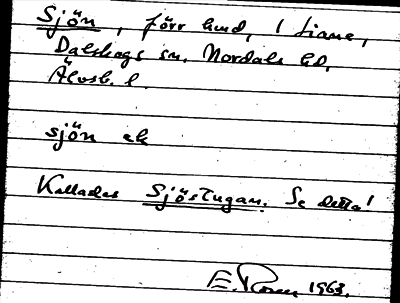 Sjön, förr lund, i Liane,
Dalskogs sn, Nordals hd,
Älvsb. l.
sjön ek
Kallades Sjöstugan. Se detta!
E. Rosen 1963.